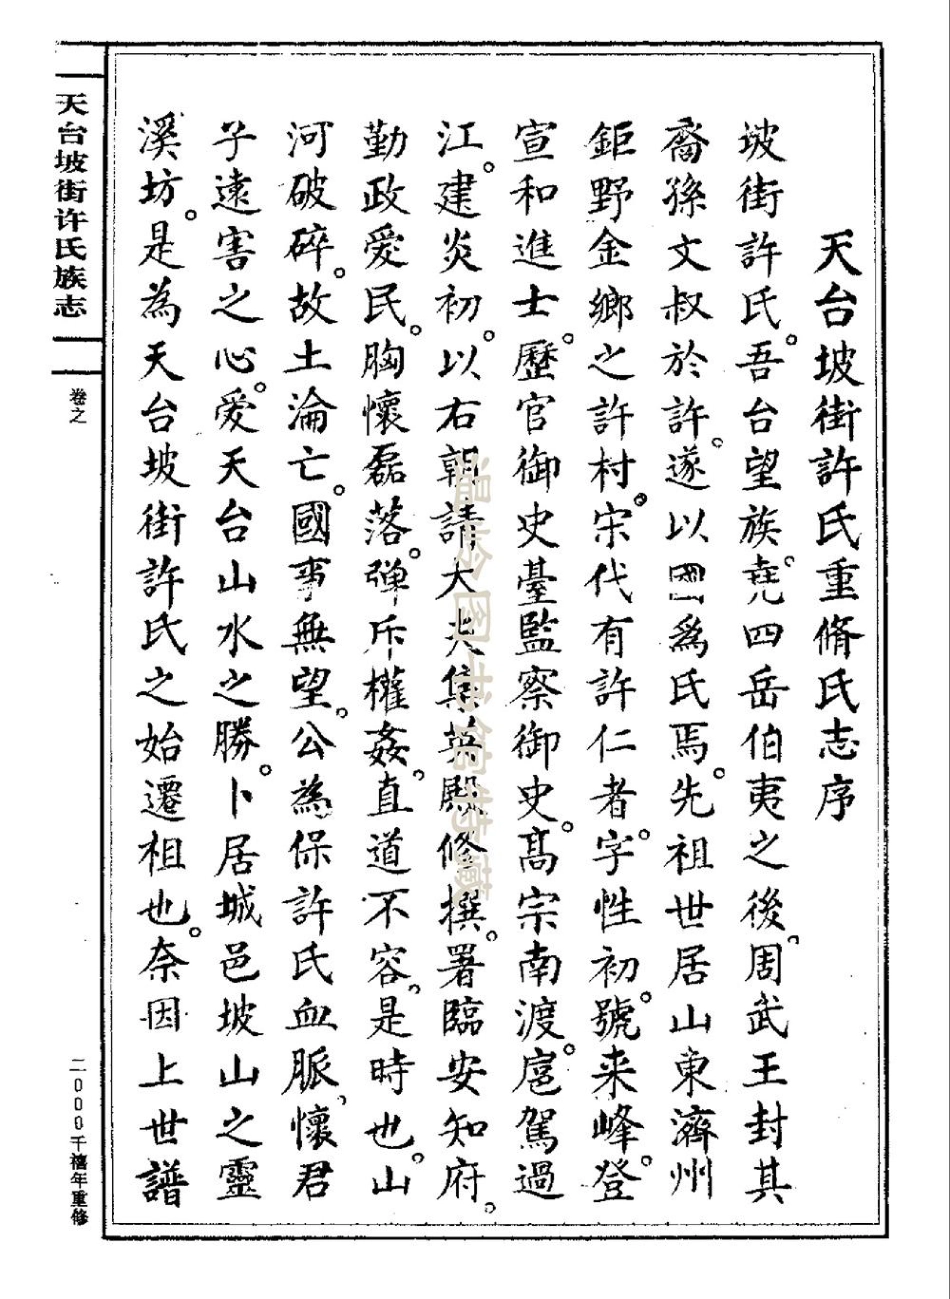 天台坡街許氏重脩氏志序
坡街許氏。吾台望族。堯四岳伯夷之後。周武王封其
裔孫文叔於許。遂以國爲氏焉。先祖世居山東濟州
鉅野金鄉之許村。宋代有許仁者。字性初。號来峰。登
宣和進士。歷官御史臺監察御史。高宗南渡。扈駕過
江。建炎初。以右朝請大夫集英殿修撰。署臨安知府。
勤政爱民。胸懷磊落。弹斥權姦。直道不容。是時也。山
河破碎。故土淪亡。國事無望。公為保許氏血脈。懷君
子遠害之心。爱天台山水之勝。卜居城邑坡山之靈
溪坊。是为天台坡街許氏之始遷祖也。奈因上世譜
天台坡街许氏族志
卷之
二000千禧年重修
温岭图书馆特藏